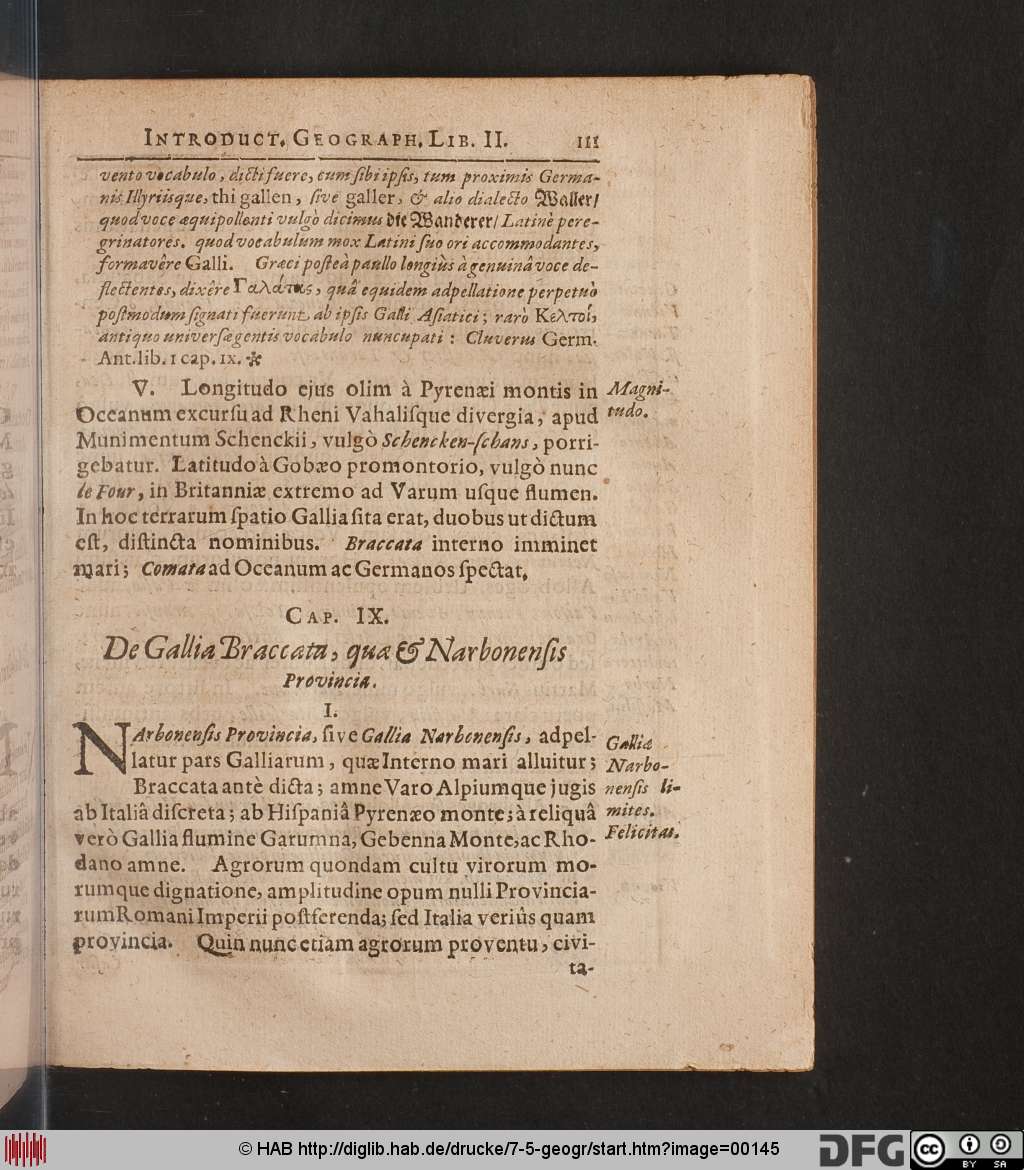 INTRODUCT. GEOGRAPH. LIB. II. 111
vento vocabulo, dicti fuere, cum ſibi ipſis, tum proximis Germa-
nis Illyriisque, thi gallen, ſive galler, & alio dialecto Waller/
quod voce æquipollenti vulgò dicimus die Wanderer/ Latinè pere-
grinatores. quod vocabulum mox Latini ſuo ori accommodantes,
formavêre Galli. Græci poſteà paullo longiùs à genuinâ voce de-
flectentes, dixêre Γαλάτας, quâ equidem adpellatione perpetuò
poſtmodum ſignati fuerunt, ab ipſis Galli Aſiatici; rarò Κελτοί,
antiquo univerſæ gentis vocabulo nuncupati: Cluverus Germ.
Ant. lib. 1 cap. IX. *
V. Longitudo ejus olim à Pyrenæi montis in
Oceanum excurſu ad Rheni Vahaliſque divergia, apud
Munimentum Schenckii, vulgò Schencken-ſchans, porri-
gebatur. Latitudo à Gobæo promontorio, vulgò nunc
le Four, in Britanniæ extremo ad Varum uſque flumen.
In hoc terrarum ſpatio Gallia ſita erat, duobus ut dictum
eſt, diſtincta nominibus. Braccata interno imminet
mari; Comata ad Oceanum ac Germanos ſpectat,
Magni-
tudo.
CAP. IX.
De Gallia Braccata, quæ & Narbonenſis
Provincia.
I.
NArbonenſis Provincia, ſive Gallia Narbonenſis, adpel-
latur pars Galliarum, quæ Interno mari alluitur;
Braccata antè dicta; amne Varo Alpiumque jugis
ab Italiâ diſcreta; ab Hiſpaniâ Pyrenæo monte; à reliquâ
verò Gallia flumine Garumna, Gebenna Monte, ac Rho-
dano amne. Agrorum quondam cultu virorum mo-
rumque dignatione, amplitudine opum nulli Provincia-
rum Romani Imperii poſtferenda; ſed Italia veriùs quam
provincia. Quin nunc etiam agrorum proventu, civi-
ta-
Gallia
Narbo-
nenſis li-
mites.
Felicitas.
© HAB http://diglib.hab.de/drucke/7-5-geogr/start.htm?image=00145
DFG
cc
BY SA